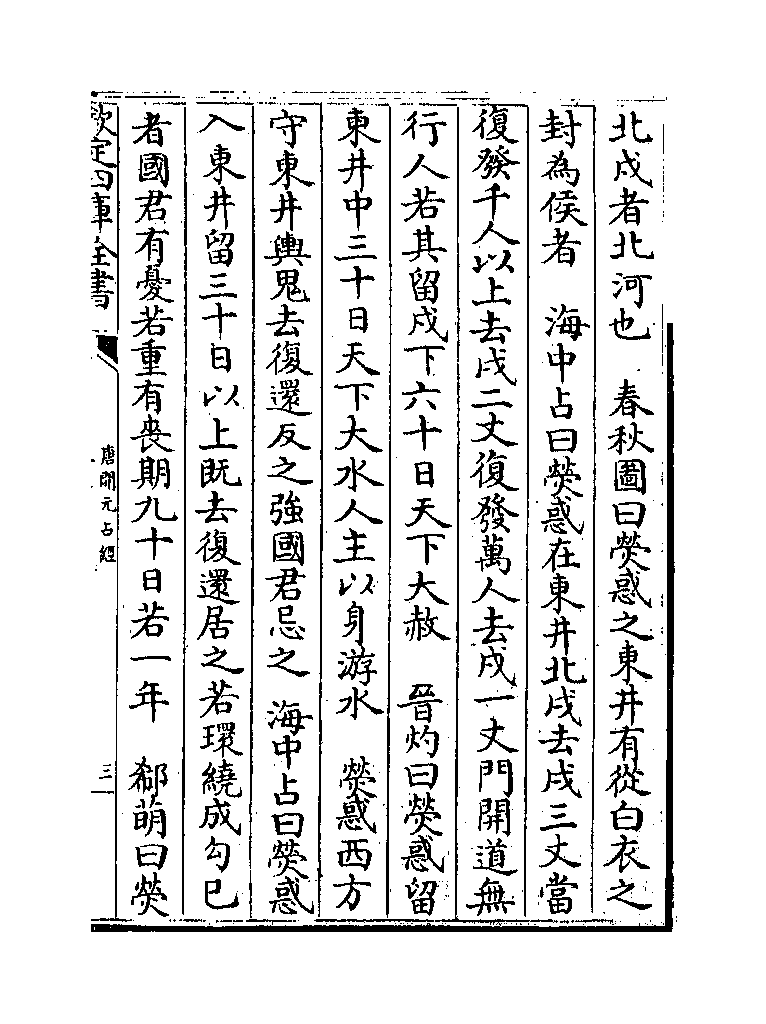 北戍者北河也　春秋圖曰熒惑之東井有從白衣之
封為侯者　海中占曰熒惑在東井北戍去戍三丈當
復發千人以上去戍二丈復發萬人去戍一丈門開道無
行人若其留戍下六十日天下大赦　晉灼曰熒惑留
東井中三十日天下大水人主以身游水　熒惑西方
守東井輿鬼去復還反之強國君忌之　海中占曰熒惑
入東井留三十日以上既去復還居之若環繞成勾巳
者國君有憂若重有喪期九十日若一年　郗萌曰熒
欽定四庫全書
唐開元占經
三